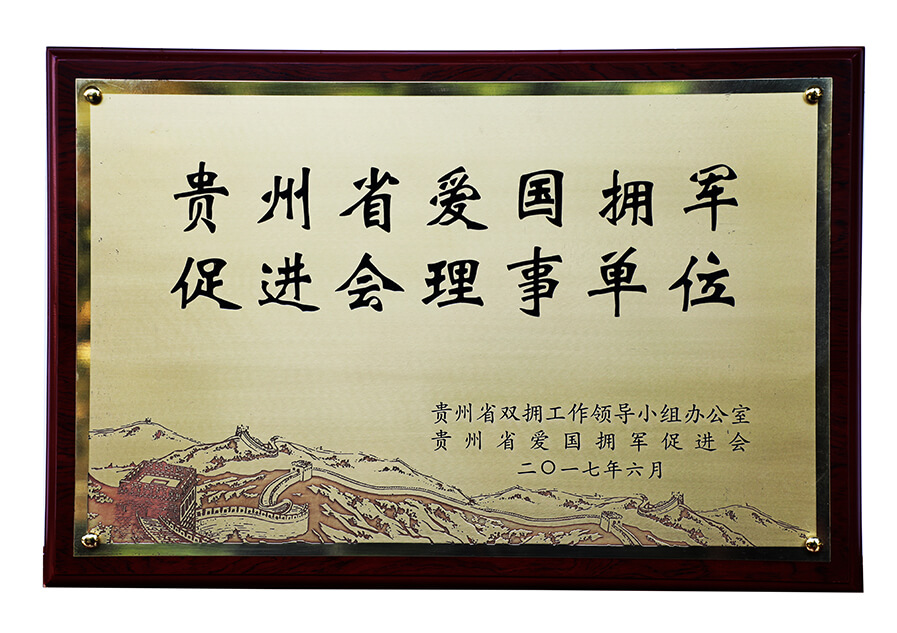 贵州省爱国拥军
促进会理事单位
贵州省双拥工作领导小组办公室
贵州省爱国拥军促进会
二〇一七年六月